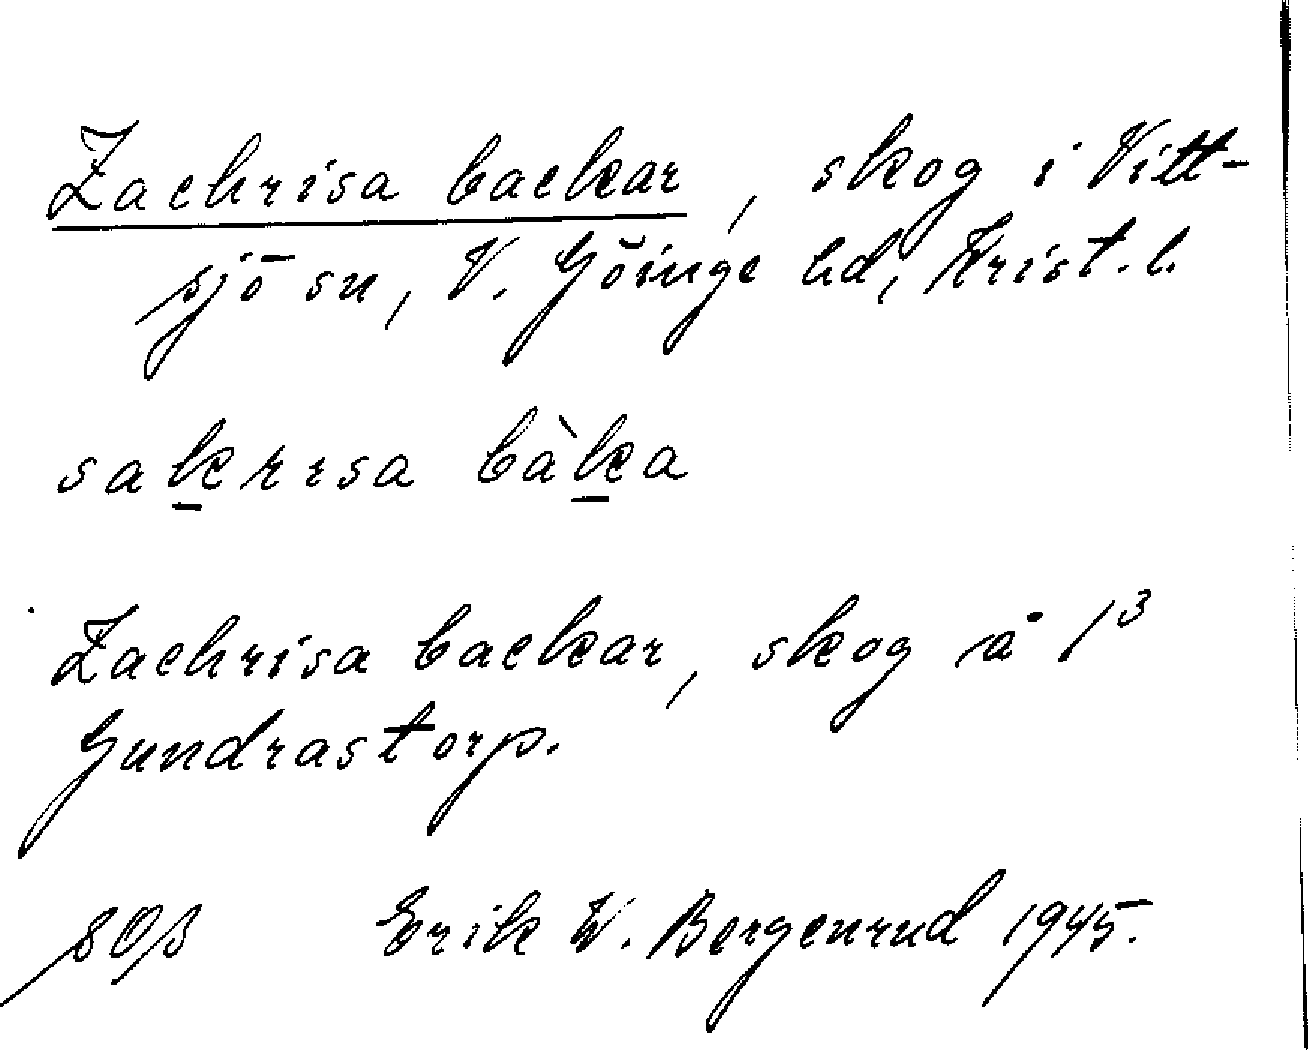 Zachrisa backar, skog i Vitt-
sjö sn, V. Göinge hd, Krist. l.
sakrɪsa bàka
Zachrisa backar, skog å 1³
Gundrastorp.
Erik W. Bergenrud 1945.